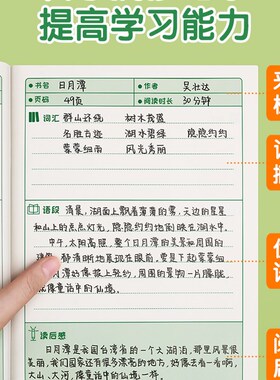 提高学习能力
书名 日月潭 作者 吴壮达
页码 49页 阅读时长 30分钟
词汇 群山环绕 树木茂盛
名胜古迹 湖水碧绿 隐隐约约
蒙蒙细雨 风光秀丽
语段 清晨,湖面上飘着薄薄的雾,天边的星星
和山上的点点灯光,隐隐约约地倒映在湖水中。
中午,太阳高照,整个日月潭的美景和周围的
建筑,都清晰地展现在眼前,要是下起蒙蒙细
雨,日月潭好像披上轻纱,周围的景物一片朦胧,
就像童话中的仙境。
读后感
日月潭是我国台湾省的一个大湖泊,那里风景很
美丽,我们国家还有很多漂亮的地方,好像去看一看啊,
大山、大河,像童话中的仙境一样。